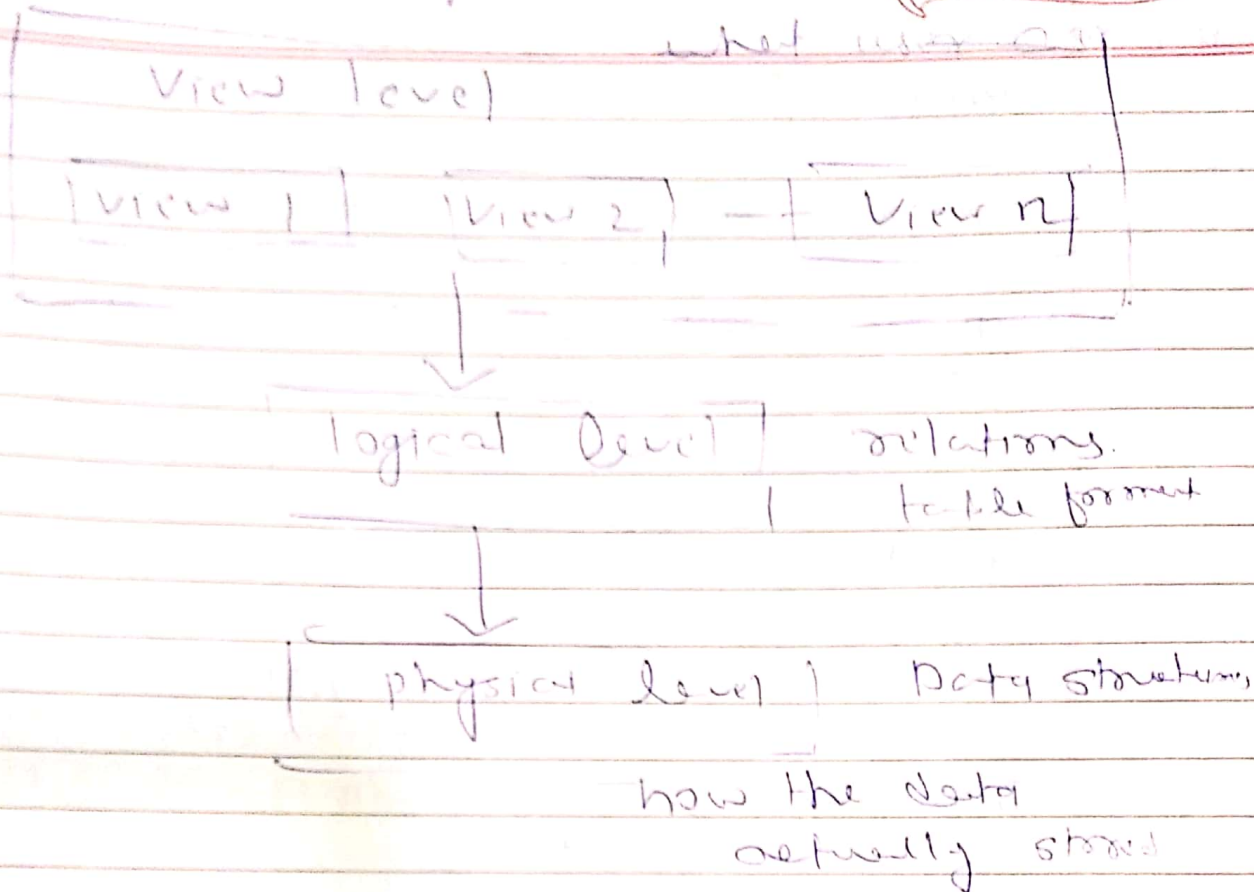 what user
View level
View 1 View 2 View n
logical level relations.
table format
physical level Data structures
how the data
actually stored